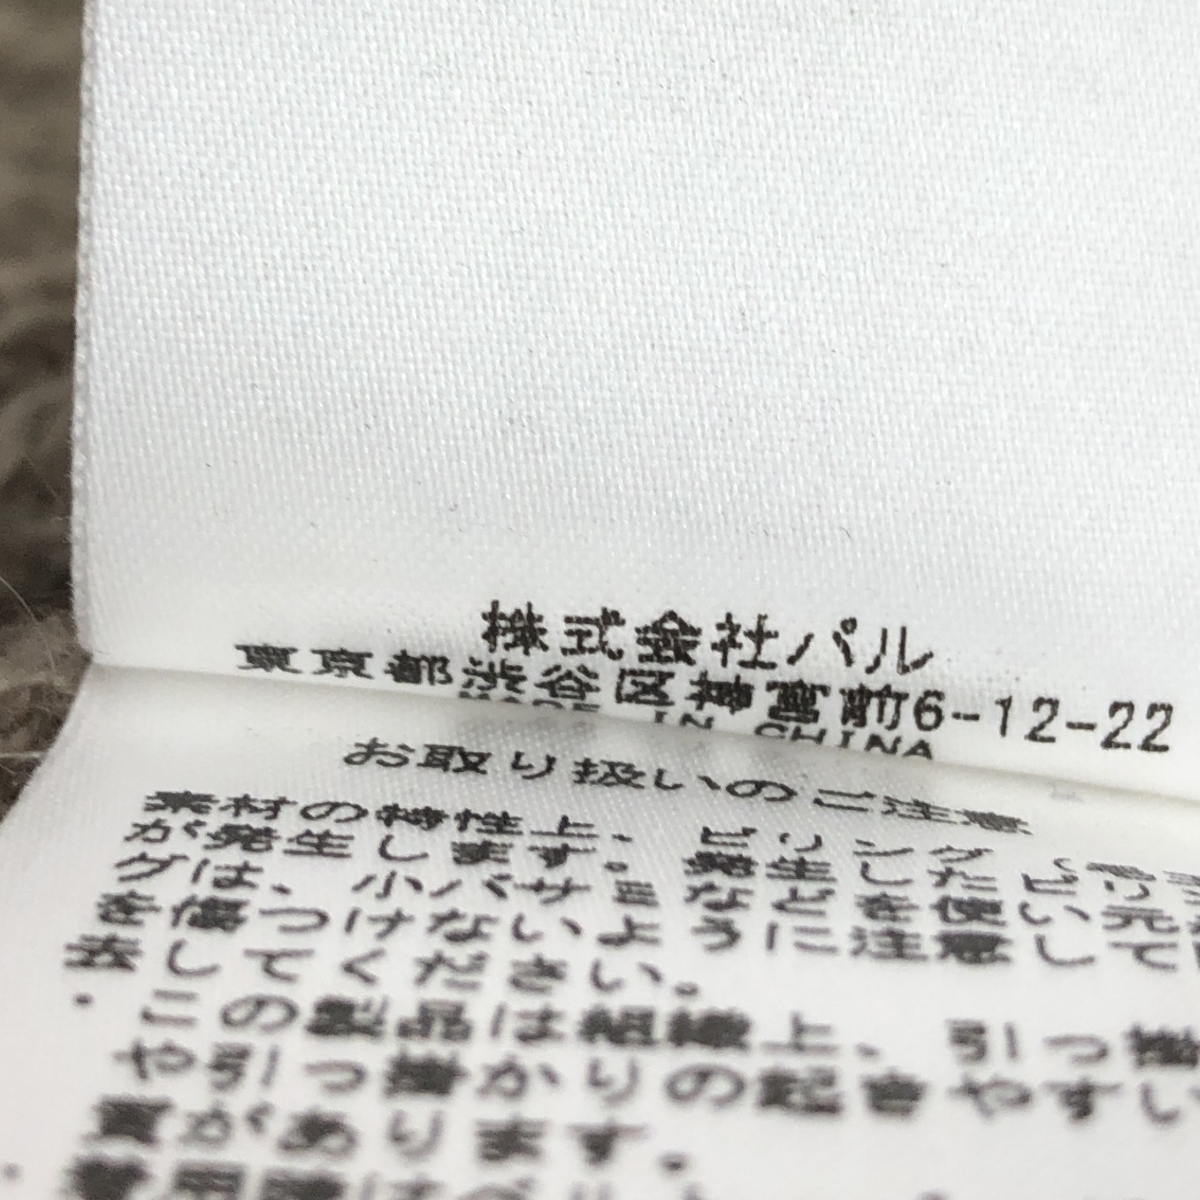 株式会社パル
東京都渋谷区神宮前6-12-22
MADE IN CHINA
お取り扱いのご注意
素材の特性上、ピリング
が発生します。発生した
グは、小バサミなどを使い
を傷つけないよう に注意して
去してください。
・この製品は組織上、引っ掛
や引っ掛かりの起きやすい
質があります。
着用時は